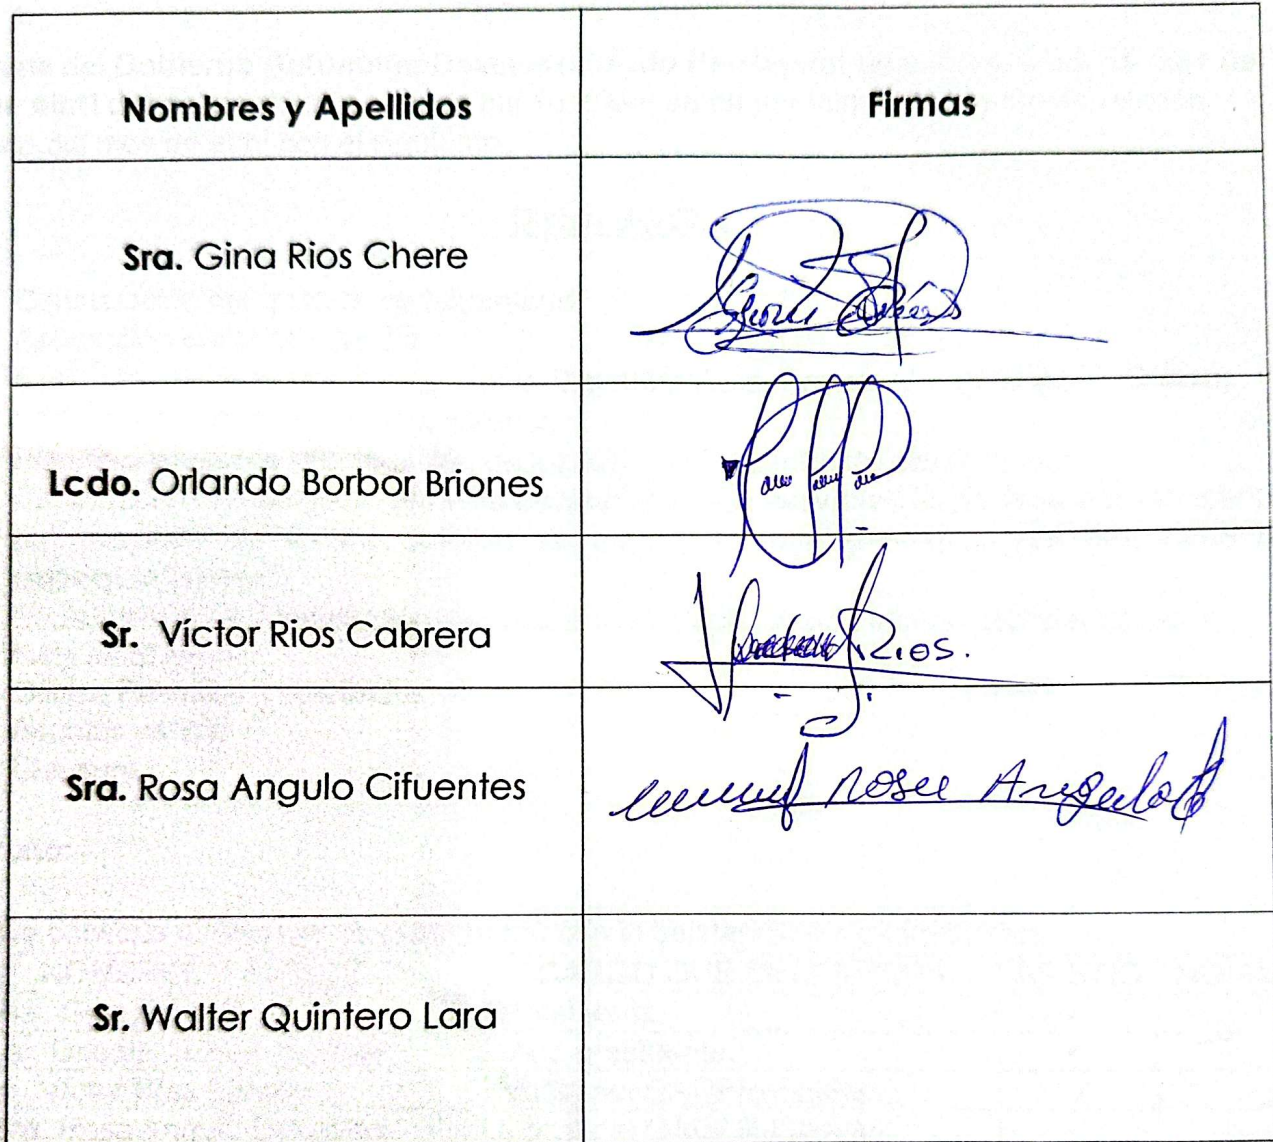 Nombres y Apellidos Firmas
Sra. Gina Rios Chere
Lcdo. Orlando Borbor Briones
Sr. Víctor Rios Cabrera
Rios.
Sra. Rosa Angulo Cifuentes
Rosa Angulo
Sr. Walter Quintero Lara